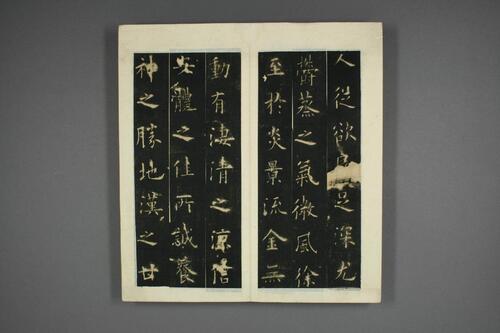 人從欲足深尤
鬱蒸之氣微風徐
至於炎景流金無
動有淒清之涼信
安體之佳所誠養
神之勝地漢之甘